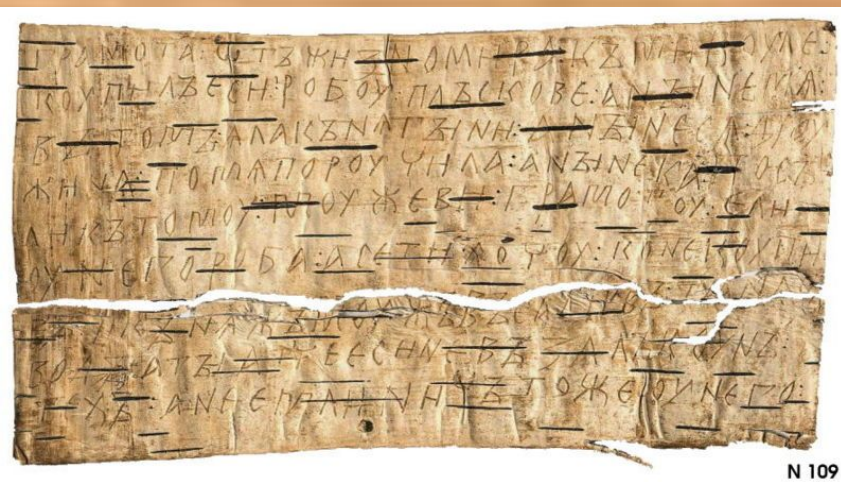 ГРАМОТА:ѠТЪЖИЗНОМИРАКЪМИКОУЛЕ:
КОУПИЛЪЕСИ:РОБОУ:ПЛЪСКОВЕ:АНЪІНЕМѦ:
ВЪТОМЪ:ѦЛАКЪНѦГЪІНИ:АНЪІНЕСѦДРОУ
ЖИНА:ПОМѦПОРОУЧИЛА:АНЪІНЕКА:ПОСЪ
ЛИКЪТОМОУ:МОУЖЕВИ:ГРАМОТОУ:ЕЛИ
ОУНЕГОРОБА:АСЕТИХОЧОУ:КОНЕКОУПИ
ВЪ:ИКЪНѦЖЪМОУЖЪВЪСАДИВЪ:ТАНАСЪ
ВОДЪІ:АТЪІАТЧЕЕСИНЕВЪЗАЛЪКОУНЪ:
ТЕХЪ:АНЕЕМЛИ:НИЧЬТОЖЕОУНЕГО:
N 109